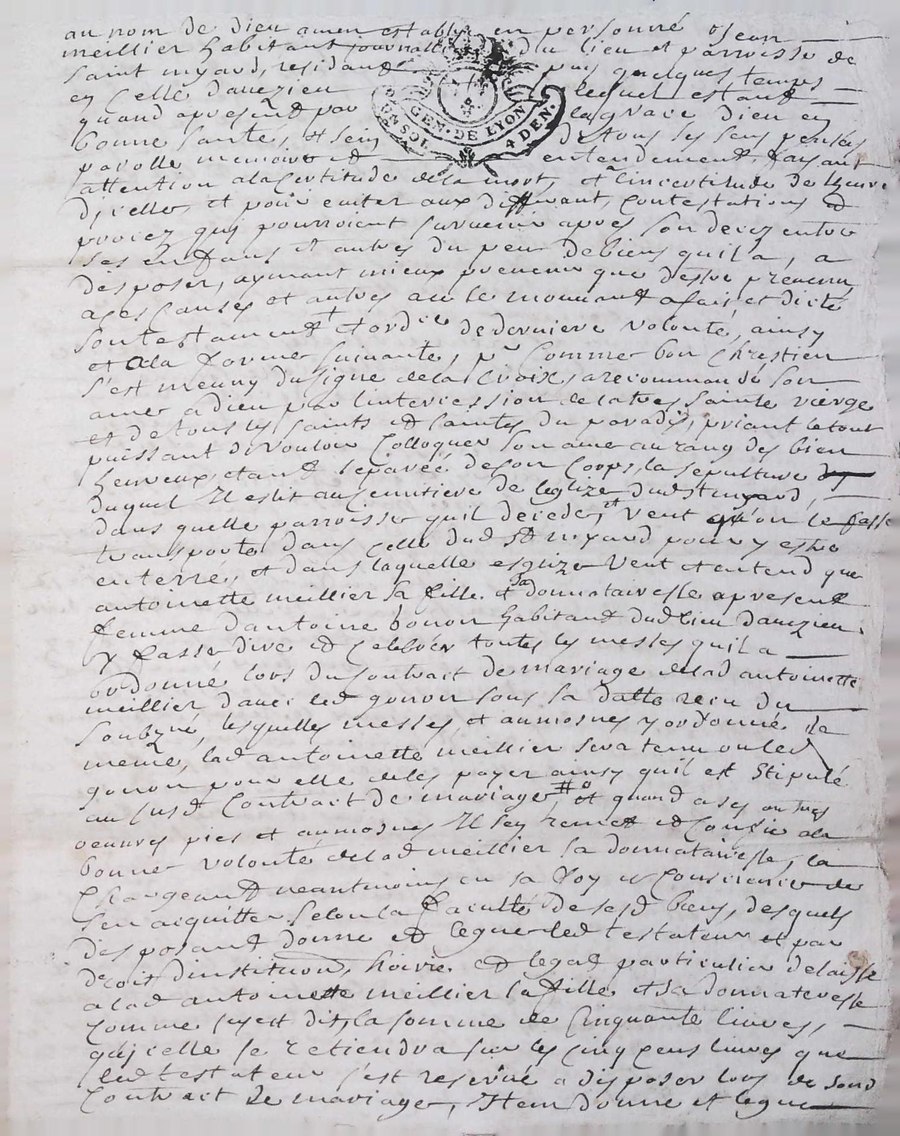 au nom de dieu amen estably en personne Jean
meillier habitant journallier du lieu et parroisse de
Saint myard, residant puis quelques temps
en celle daveizieu lequel estant
quand apresent par la grace Dieu en
bonne sante, et sein de tous ses sens pensées
parolle memoire et entendement, faisant
attention ala certitude de la mort, et lincertitude de lheure
dicelle, et pour eviter aux differant, contestations et
procez quy pourroient survenir apres son decez entre
ses enfans et autres du peu de biens quil a, a
disposer, aymant mieux prevenir que destre prevenu
a ces causes et autres au le mouvant a fait et dicté
son testament et ordce de derniere volonté, ainsy
et ala forme suivante, pr comme bon Chrestien
s'est meuny du signe de la Croix, a recommandé son
ame a dieu par lintercession de la tres sainte vierge
et de tous les saints et saintes du paradis, priant le tout
puissant de vouloir colloquer son ame au rang des bien
heureux, etant separée de son corps, la sepulture
duquel Il eslit au cemitiere de leglize dud st myard,
dans quelle parroisse quil decede, et veut qu'on le fasse
transporter dans celle dud St myard pour y estre
enterré, et dans laquelle esglize veut et entend que
antoinette meillier sa fille et sa donnatairesse apresent
femme dantoine gonon habitant dud lieu daveizieu
y fasse dire et cellebrer toutes les messes quil a
ordonné lors du contrait de mariage de lad antoinette
meillier avec led gonon sous sa datte recu du
soubzné, lesquelles messes, et aumosnes y ordonné de
meme, lad antoinette meillier sera tenu ou led
gonon pour elle de les payer ainsy quil est Stipulé
au susd Contrait de mariage, # et quand a ses autres
oeuvres pies et aumosnes Il sen remet et confie ala
bonne volonté de lad meillier sa donnatairesse, la
Chargeant neantmoins en sa foy et Conscience de
sen aiquitter selon la faculté de sesd biens, desquels
disposant donne et legue led testateur et par
droit dinstitution, hoirie et legat particulier delaisse
a lad antoinette meillier sa fille et sa donnateresse
comme sus est dit, la somme de Cinquante livres,
quicelle se retiendra sur les cinq cens livres que
led testateur s'est reservé a disposer lors de sond
Contrait de mariage, Item donne et legue
GEN. DE LYON
4 DEN.